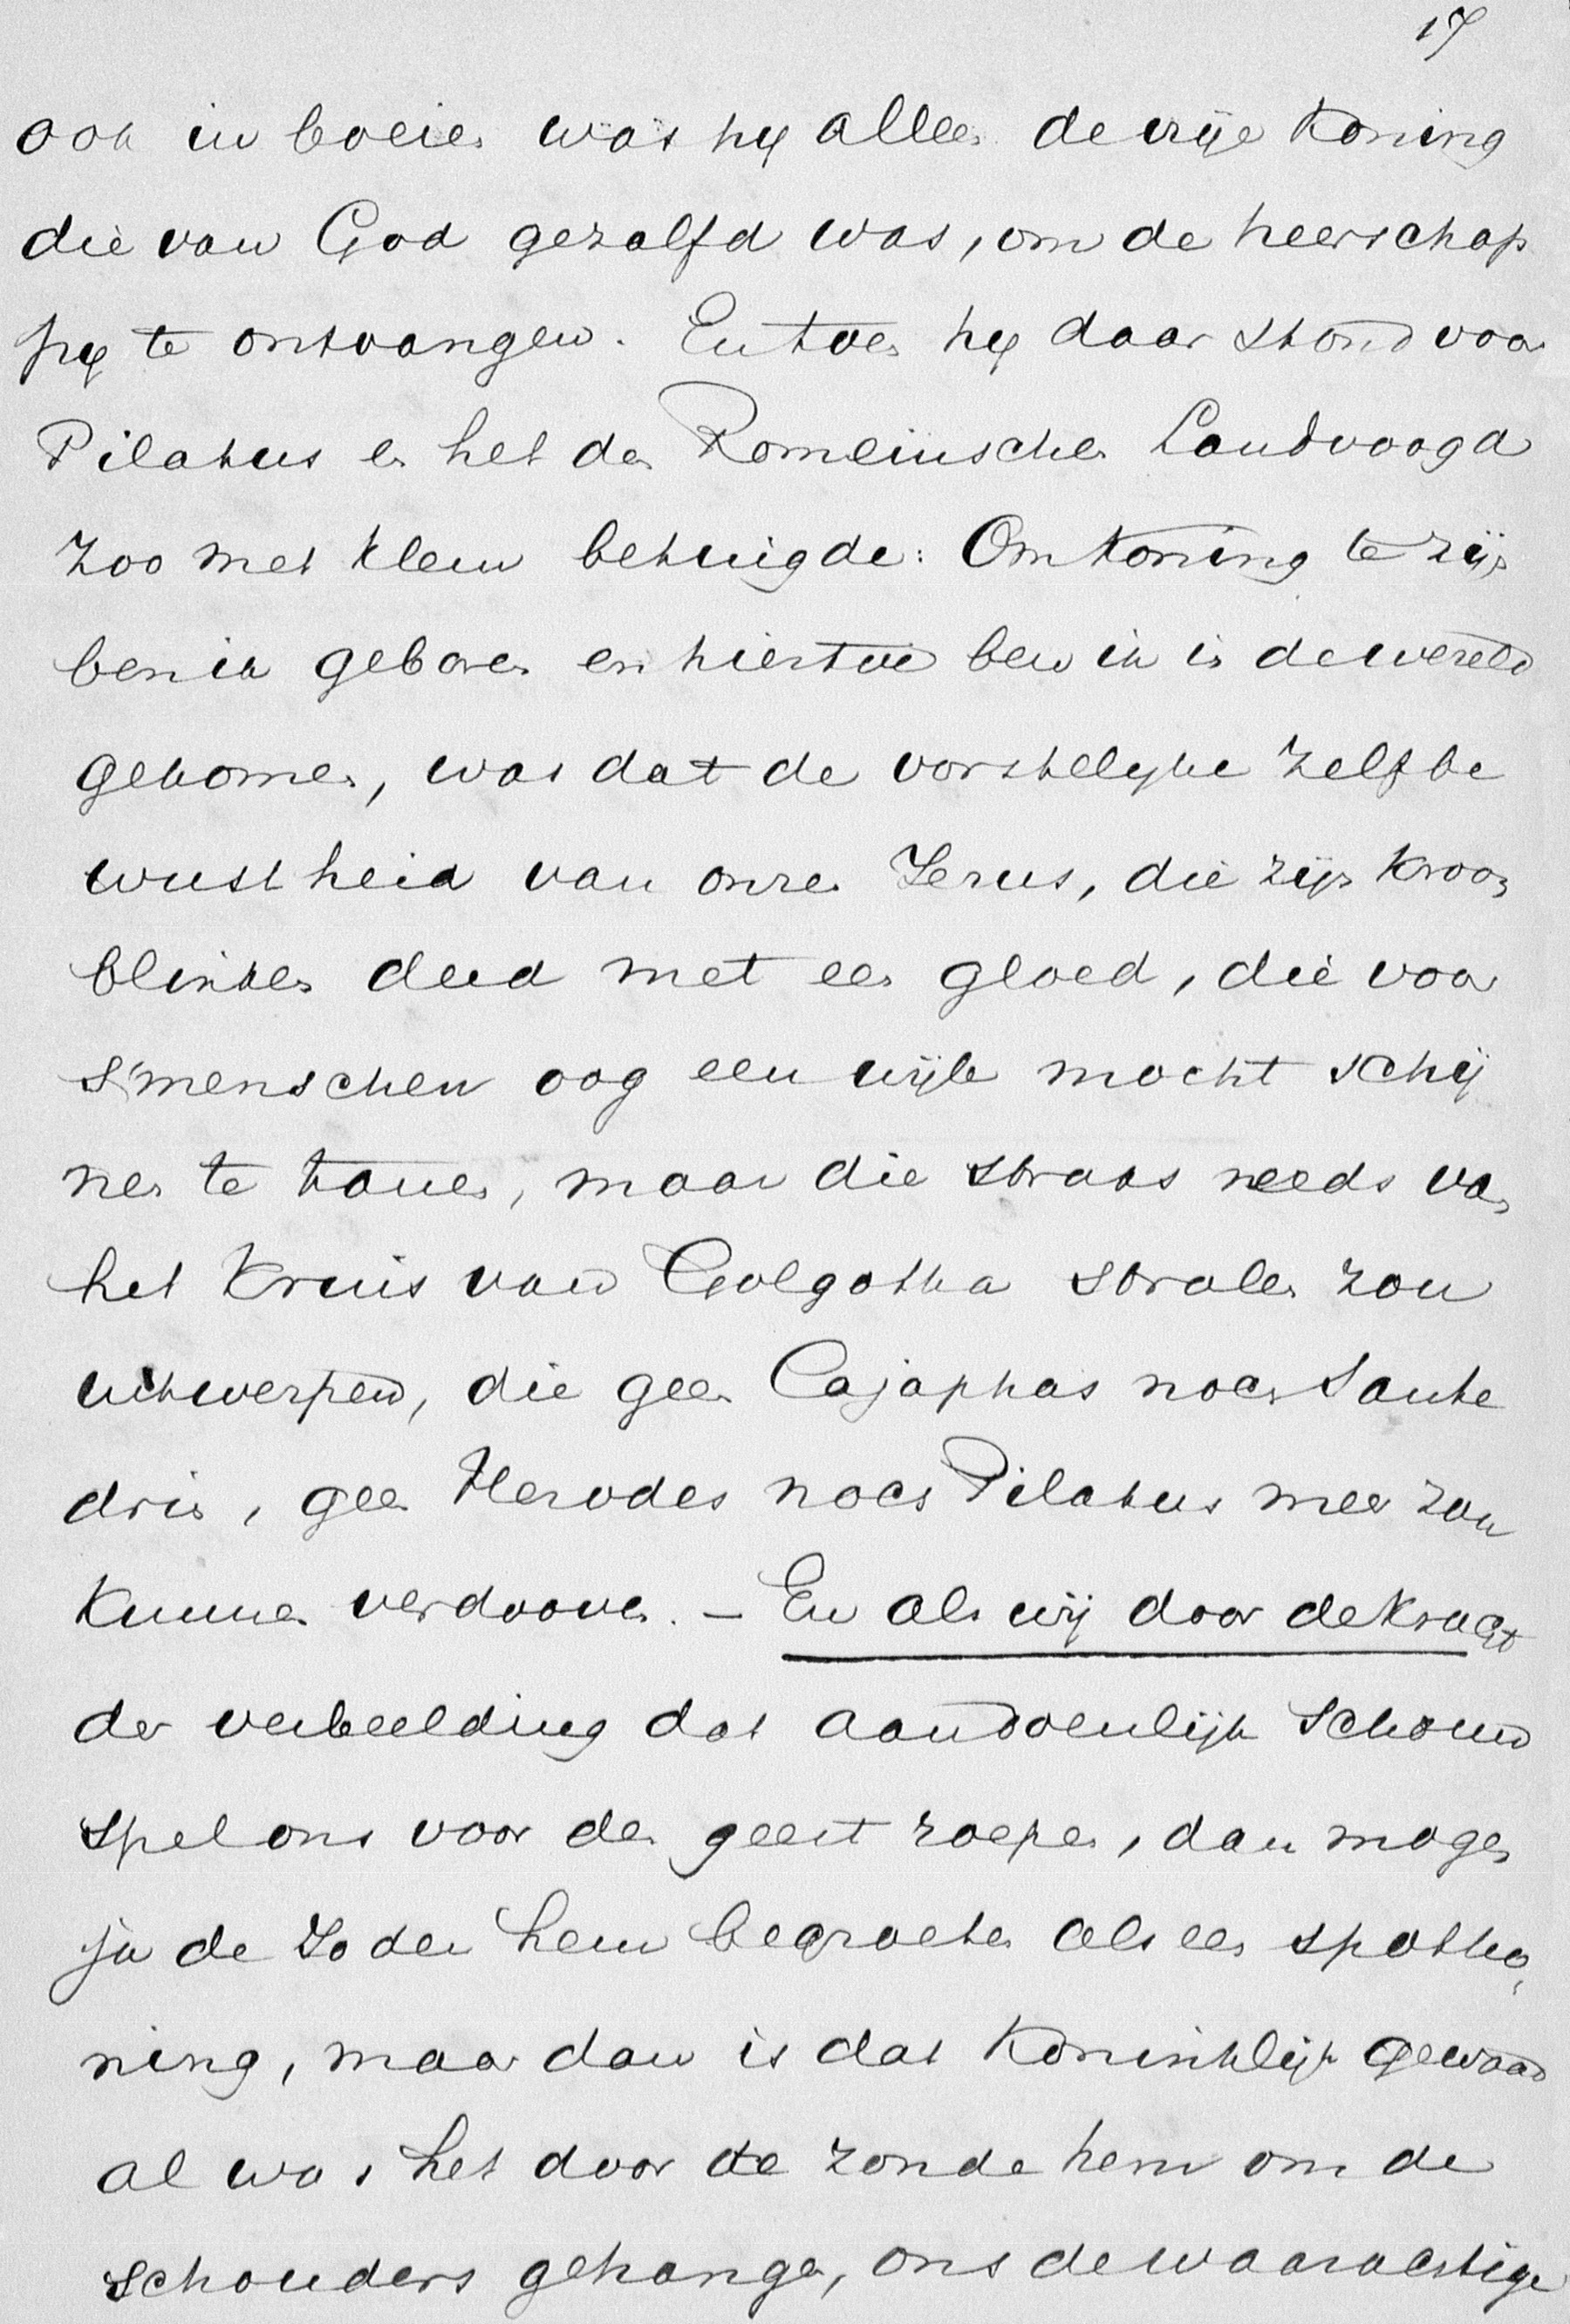 17
ook in boeien was hy alleen de vrije Koning
die van God gezalfd was, om de heerschap
py te ontvangen. En toen hy daar stond voor
Pilatus en het den Romeinschen Landvoogd
zoo met klem betuigde: Om Koning te zijn
ben ik geboren en hiertoe ben ik in de wereld
gekomen, was dat de vorstelyke zelfbe
wustheid van onzen Jezus, die zijn Kroon
blinken deed met een gloed, die voor
s'menschen oog een wijle mocht schij
nen te tanen, maar die straks reeds van
het Kruis van Golgotha stralen zou
uitwerpen, die geen Cajaphas noch Sanhe
drin, geen Herodes noch Pilatus meer zou
kunnen verdooven. – En als wij door de Kracht
der verbeelding dat aandoenlijk schouw
spel ons voor den geest roepen, dan mogen
ja de Joden hem begroeten als een spotko
ning, maar dan is dat Koninklijk gewaad
al was het door de zonde hem om de
schouders gehangen, ons de waarachtige